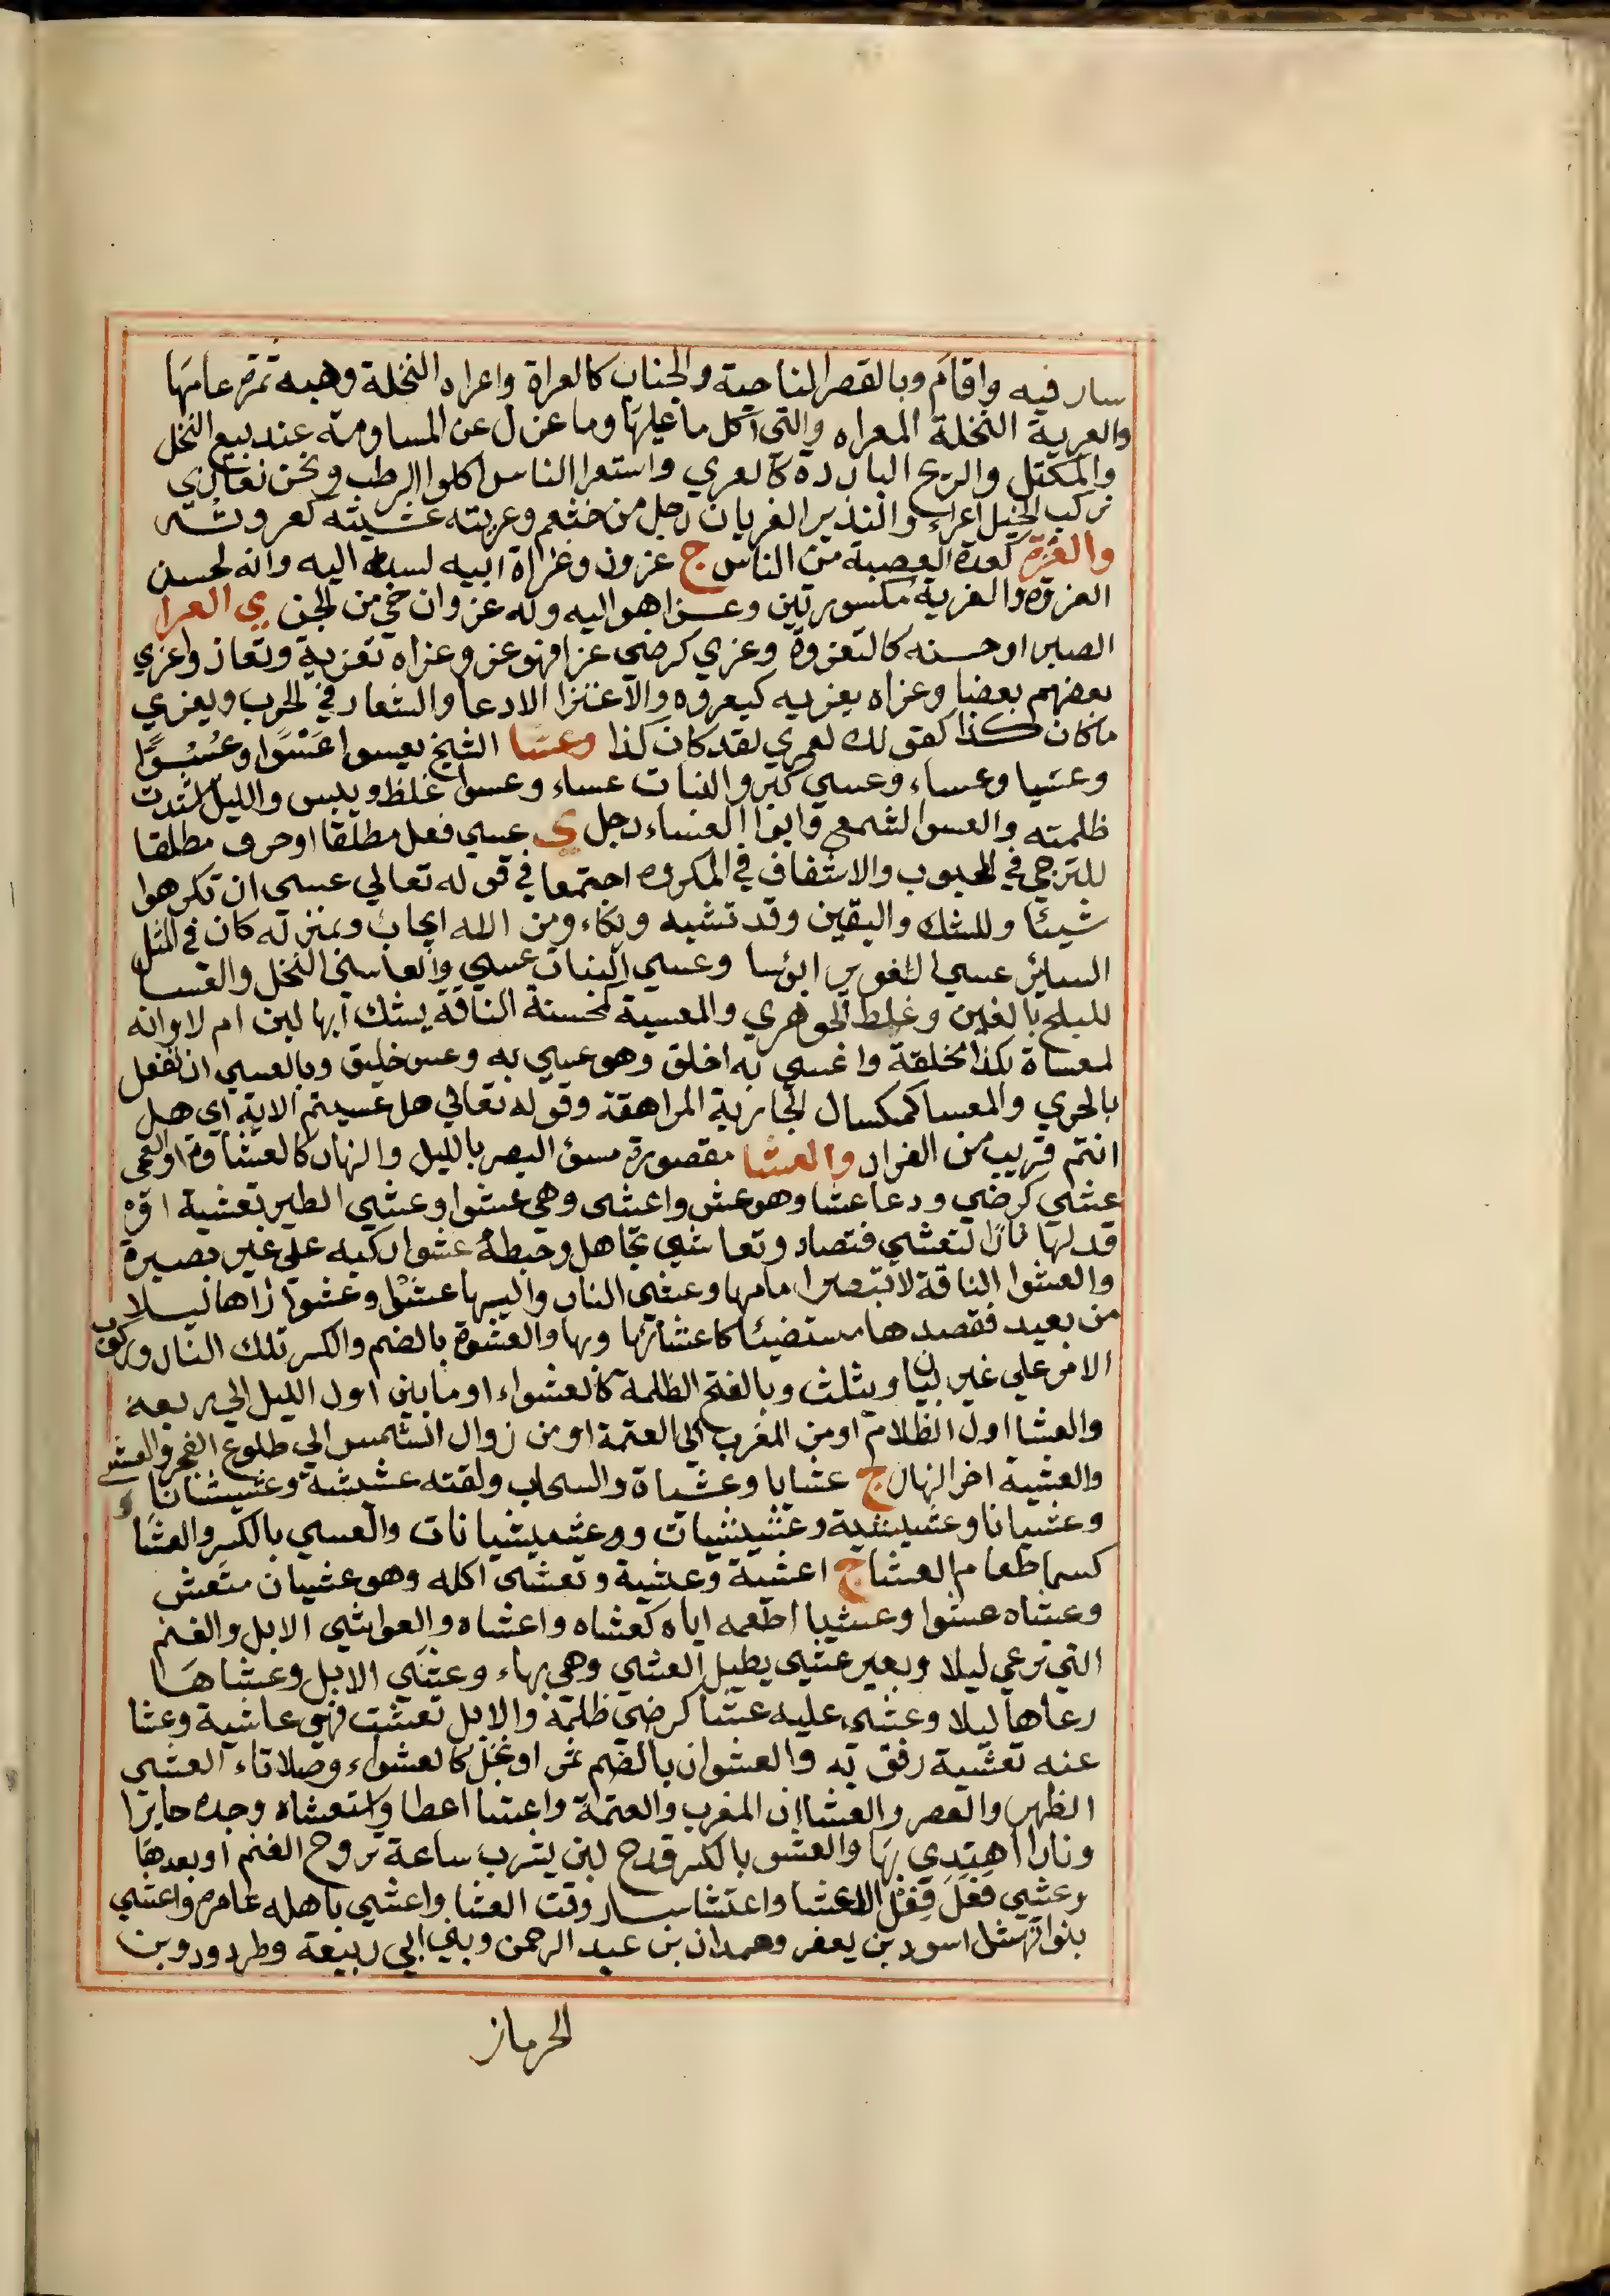 سار فيه واقام وبالقصر الناحية والجناب كالعراة واعراه النخلة وهبه ثمرة عامها
والعرية النخلة المعراه والتي اكل ما عليها وما عزل عن المساومة عند بيع النخل
والمكتل والريح الباردة كالعري واستعرا الناس اكلوا الرطب ونحن نعاري
نركب الخيل اعراء والنذير العريان رجل من خثعم وعريته غشيته كعروته
والعزة كعدة العصبة من الناس ج عزون وعزاة ابيه نسبه اليه وانه لحسن
العزوة والعزية مكسورتين وعزا هو اليه وله عزوان حي من الجن ي العزا
الصبر او حسنه كالتعزوة وعزي كرضي عزا فهو عز وعزاه تعزية وتعاز واعزي
بعضهم بعضا وعزاه يعزيه كيعزوه والاعتزا الادعا والشعار في الحرب ويعزي
ما كان كذا كقولك لعمري لقد كان كذا وعسا الشيخ يعسوا عسوا وعسوا
وعسيا وعساء وعسي كبر والنبات عساء وعسوا غلظ ويبس والليل اشتدت
ظلمته والعسو الشمع وابوا العساء رجل ي عسي فعل مطلقا او حرف مطلقا
للترجي في المحبوب والاشفاق في المكروه اجتمعا في قوله تعالي عسى ان تكرهوا
شيئا وللشك واليقين وقد تشبه وبكاء ومن الله ايجاب وبمنزلة كان في المثل
السائر عسي الغوير ابؤسا وعسي النبات عسي والعاسي النخل والعسا
للبلح بالغين وغلط الجوهري والمعسية كمحسنة الناقة يشك ابها لبن ام لا وانه
لمعساة بكذا مخلقة واعسي به اخلق وهو عسي به وعس خليق وبالعسي ان تفعل
بالحري والمعسا كمكسال الجارية المراهقة وقوله تعالي هل عسيتم الاية اي هل
انتم قريب من الفرار والعشا مقصورة سوء البصر بالليل والنهار كالعشاوة او العمى
عشي كرضي ودعا عشا وهو عش واعشى وهي عشوا وعشي الطير تعشية اوقد
قد لها نارا لتعشي فتصاد وتعاشي تجاهل وخبطه عشوا ركبه على غير بصيرة
والعشوا الناقة لا تبصر امامها وعشي النار واليها عشوا وعشوا راها ليلا
من بعيد فقصدها مستضيئا كاعتشاها وبها والعشوة بالضم والكسر تلك النار وركوب
الامر علي غير بيان ويثلث وبالفتح الظلمة كالعشواء او ما بين اول الليل الي ربعه
والعشا اول الظلام او من المغرب الي العتمة او من زوال الشمس الي طلوع الفجر والعشي
والعشية اخر النهار ج عشايا وعشيات والسحاب ولقته عشيشة وعشيشانا و
وعشيانا وعشيشية وعشيشيات وعشيشيانات والعسي بالكسر والعشا
كسما طعام العشا ج اعشية وعشية وتعشى اكله وهو عشيان متعش
وعشاه عشوا وعشيا اطعمه اياه كعشاه واعشاه والعواشي الابل والغنم
التي ترعي ليلا وبعير عشي يطيل العشي وهي بهاء وعشي الابل وعشاها
رعاها ليلا وعشي عليه عشا كرضي ظلمه والابل تعشت فهي عاشية وعشا
عنه تعشية رفق به والعشوان بالضم تمر او نخل كالعشواء وصلاتاء العشي
الظهر والعصر والعشاان المغرب والعتمة واعشا اعطا واستعشاه وجده حايرا
ونارا اهتدي بها والعشو بالكسر قدح لبن يشرب ساعة تروح الغنم او بعدها
وعشي فعل فعل الاعشا واعتشا سار وقت العشا واعشي باهله عامر واعشي
بنوا نهشل اسود بن يعفر وهمدان بن عبد الرحمن وبني ابي ربيعة وطرود وبن
الحرماز